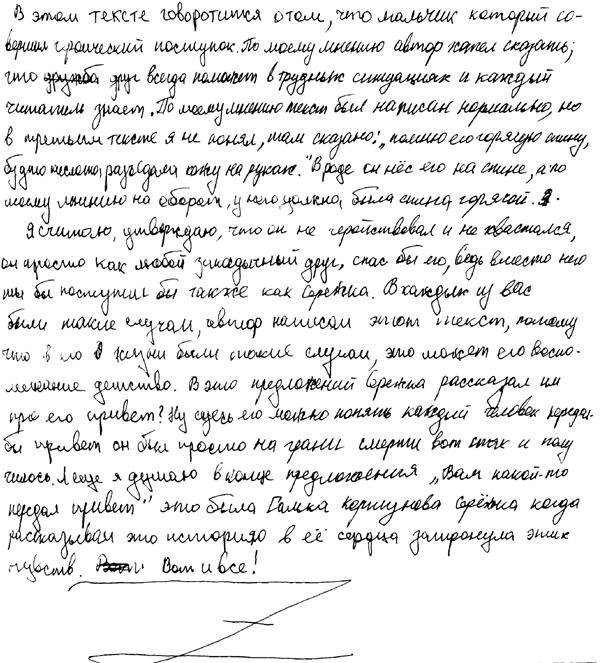 В этом тексте говоротится отом, что мальчик который со-
вершил героический поступок. По моему мнению автор хател сказать;
что друг всегда поможет в трудных ситуациах и каждый
читатель знает. По моему мнению текст был написан нормально, но
в третьим тексте я не понял, там сказано: „помню его горячую спину,
будто кислота разъедала кожу на руках." Вроде он нёс его на спине, а по
моему мнинию на оборот, у него должна была спина горячой.
Я считаю, утверждаю, что он не геройствовал и не хвастался,
он просто как любой закадычный друг, спас бы его, ведь вместо него
мы бы поступил бы также как Серёжка. В каждых из вас
были такие случаи, автор написал этот текст, потому
что в его в жизни были такие случаи, это может его воспо-
менание детство. В это предложений Серёжка рассказал им
про его привет? Ну здесь его можно понять каждый человек передал-
бы привет он был просто на грани смерти вот так и полу
чилось. А еще я думаю в конце предложения „Вам какой-то
передал привет" это была Галка Коршунова Серёжка когда
рассказывал это историю в её сердца затронула этих
чувств. Вот и все!